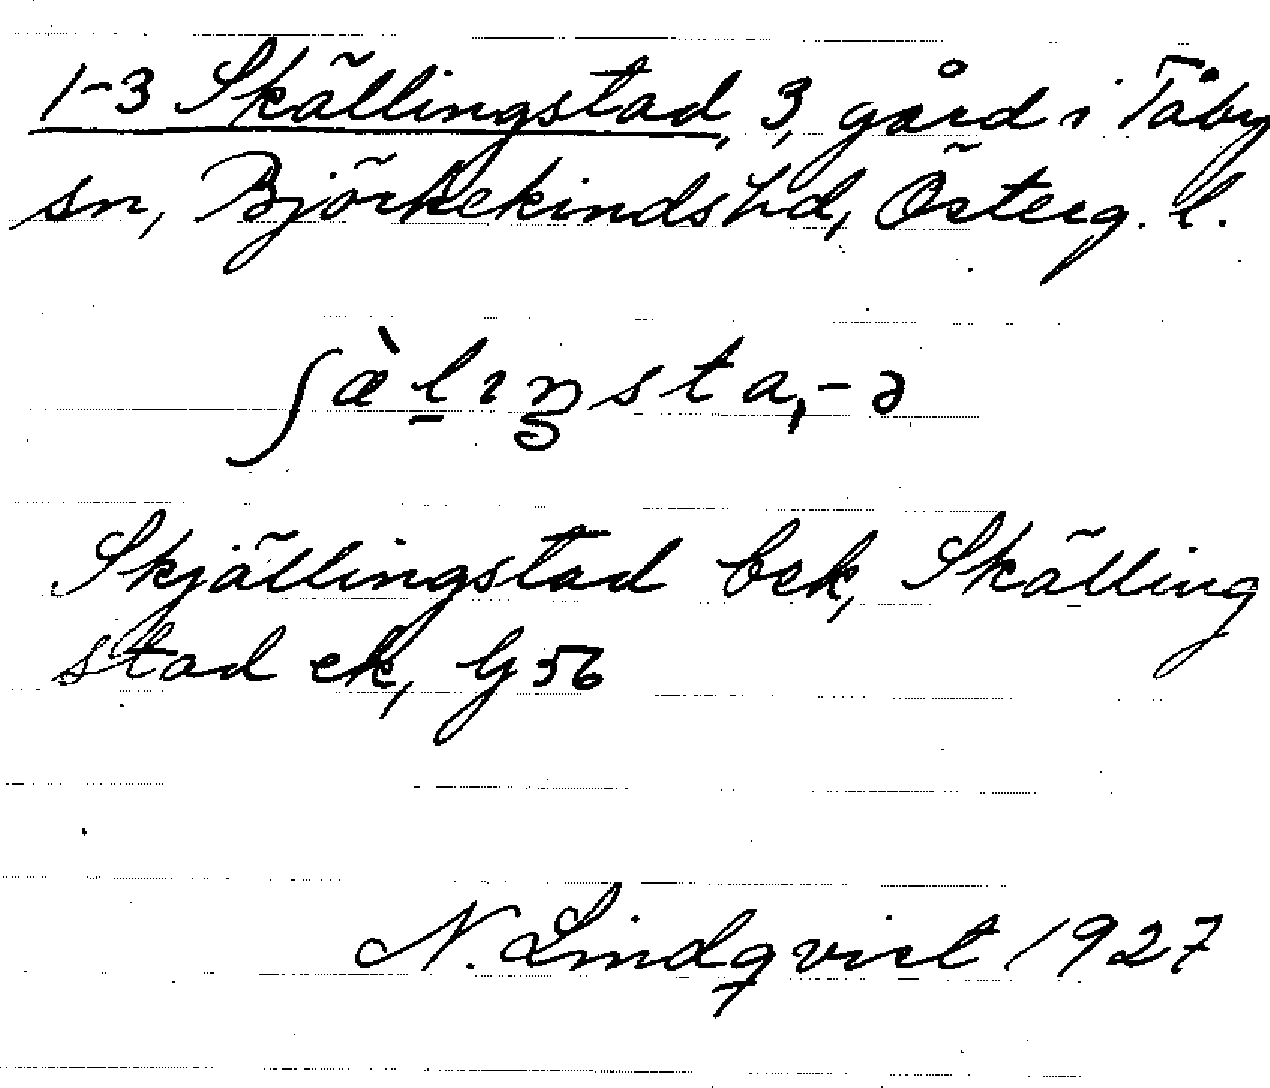 1-3 Skällingstad, 3, gård i Tåby
sn, Björkekinds hd, Österg. l.
ʃæ̀lıŋsta, -ə
Skjällingstad bek, Skälling
stad ek, G 56
N. Lindqvist 1927